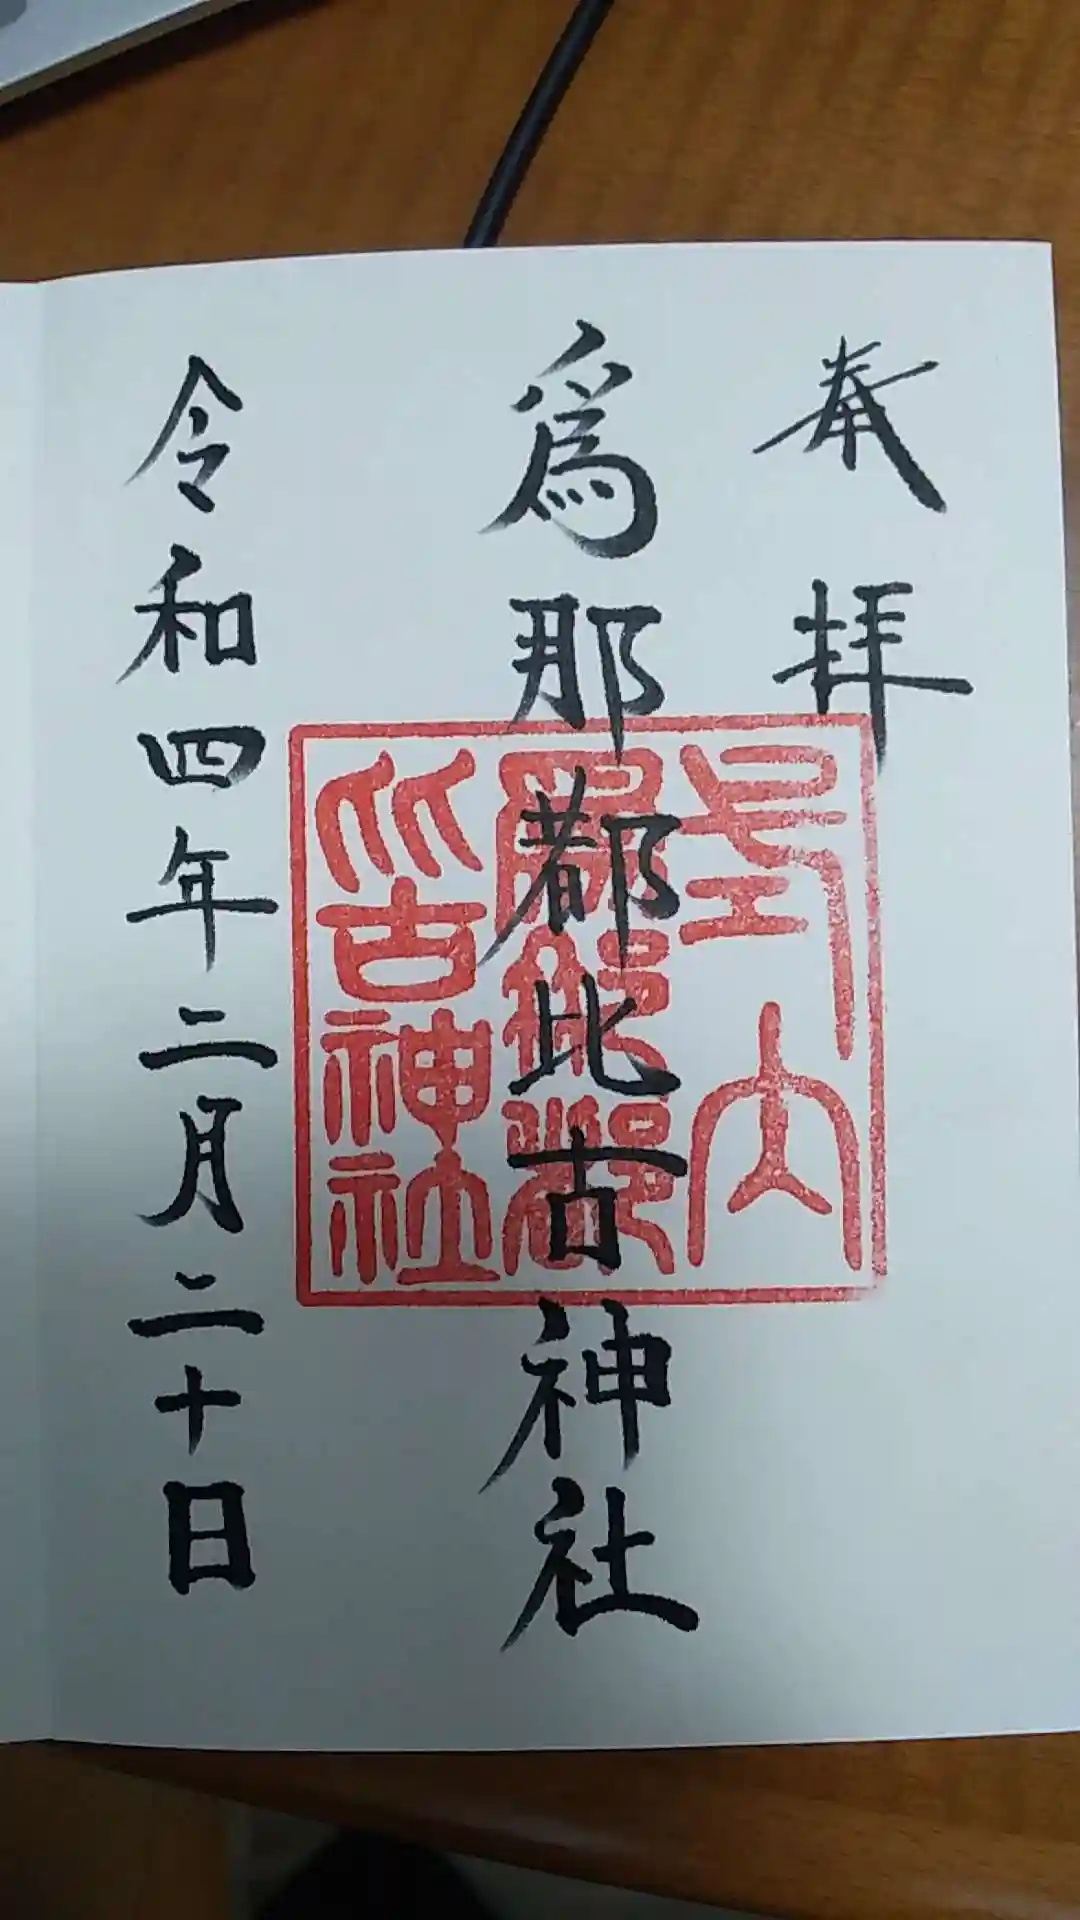 奉拝
為那都比古神社
令和四年二月二十日
式内
為那都
比古神社